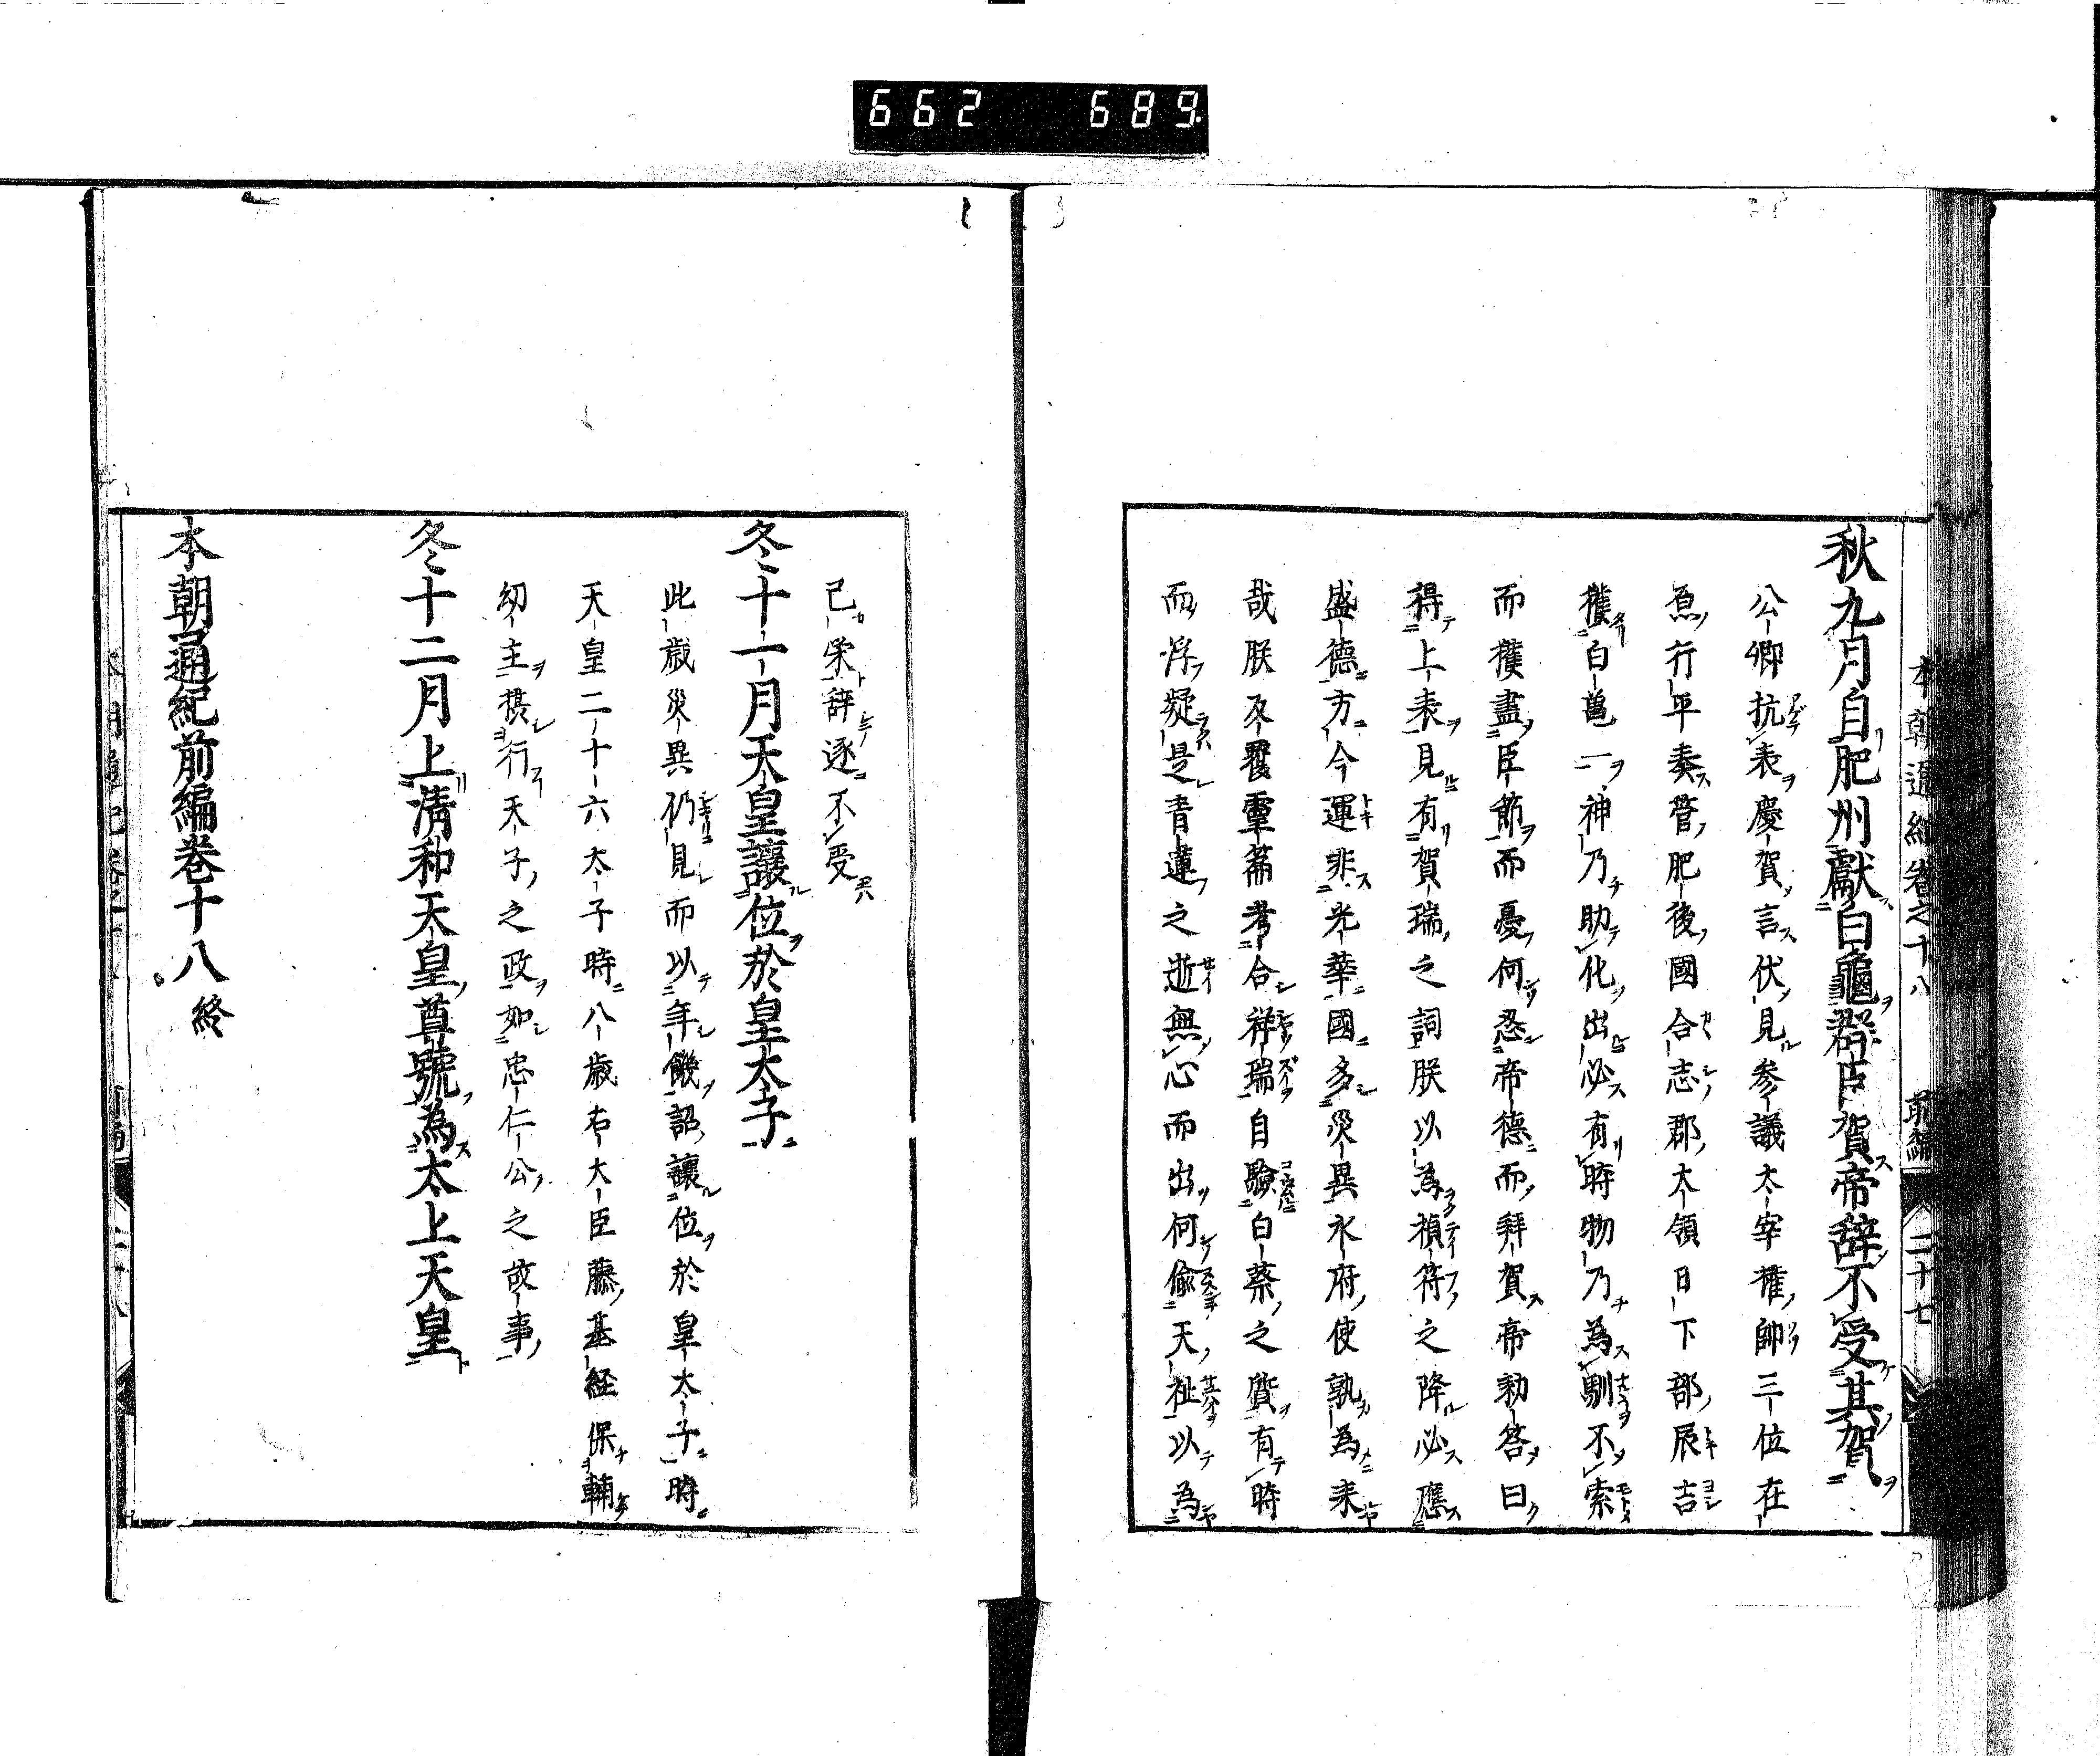 662 689
本朝通紀卷之十八 前編 二十七
秋九月自肥州獻白龜群臣賀帝辞不受其賀
公卿抗表慶賀言伏見参議太宰権帥三位在
原行平奏管肥後國合志郡大領日下部辰吉
獲白亀一神乃助化出必有時物乃為馴不索
而獲盡臣節而憂何忍帝德而拜賀帝勅答曰
得上表見有賀瑞之詞朕以為禎符之降必應
盛德方今運非光華國多災異水府使孰為来
哉朕及覆畳篇考合祥瑞自驗白蔡之貨有時
而浮疑是青蓮之逝無心而出何偸天祉以為
己栄辞逐不受
冬十一月天皇讓位於皇太子
此歳災異仍見而以年饑詔讓位於皇太子時
天皇二十六太子時八歳右大臣藤基経保輔
幼主摂行天子之政如忠仁公之故事
冬十二月上清和天皇尊號為太上天皇
本朝通紀前編巻十八終